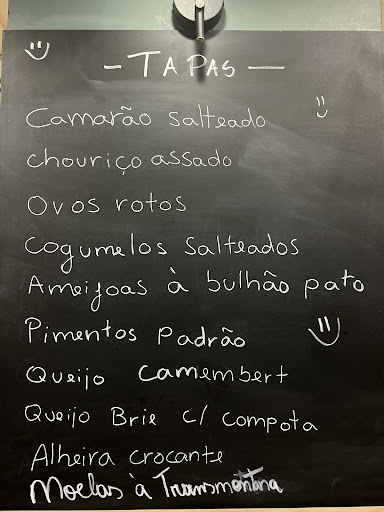 - TAPAS -
Camarão salteado
chouriço assado
Ovos rotos
Cogumelos salteados
Ameijoas à bulhão pato
Pimentos Padrão
Queijo camembert
Queijo Brie c/ compota
Alheira crocante
Moelas à Transmontana